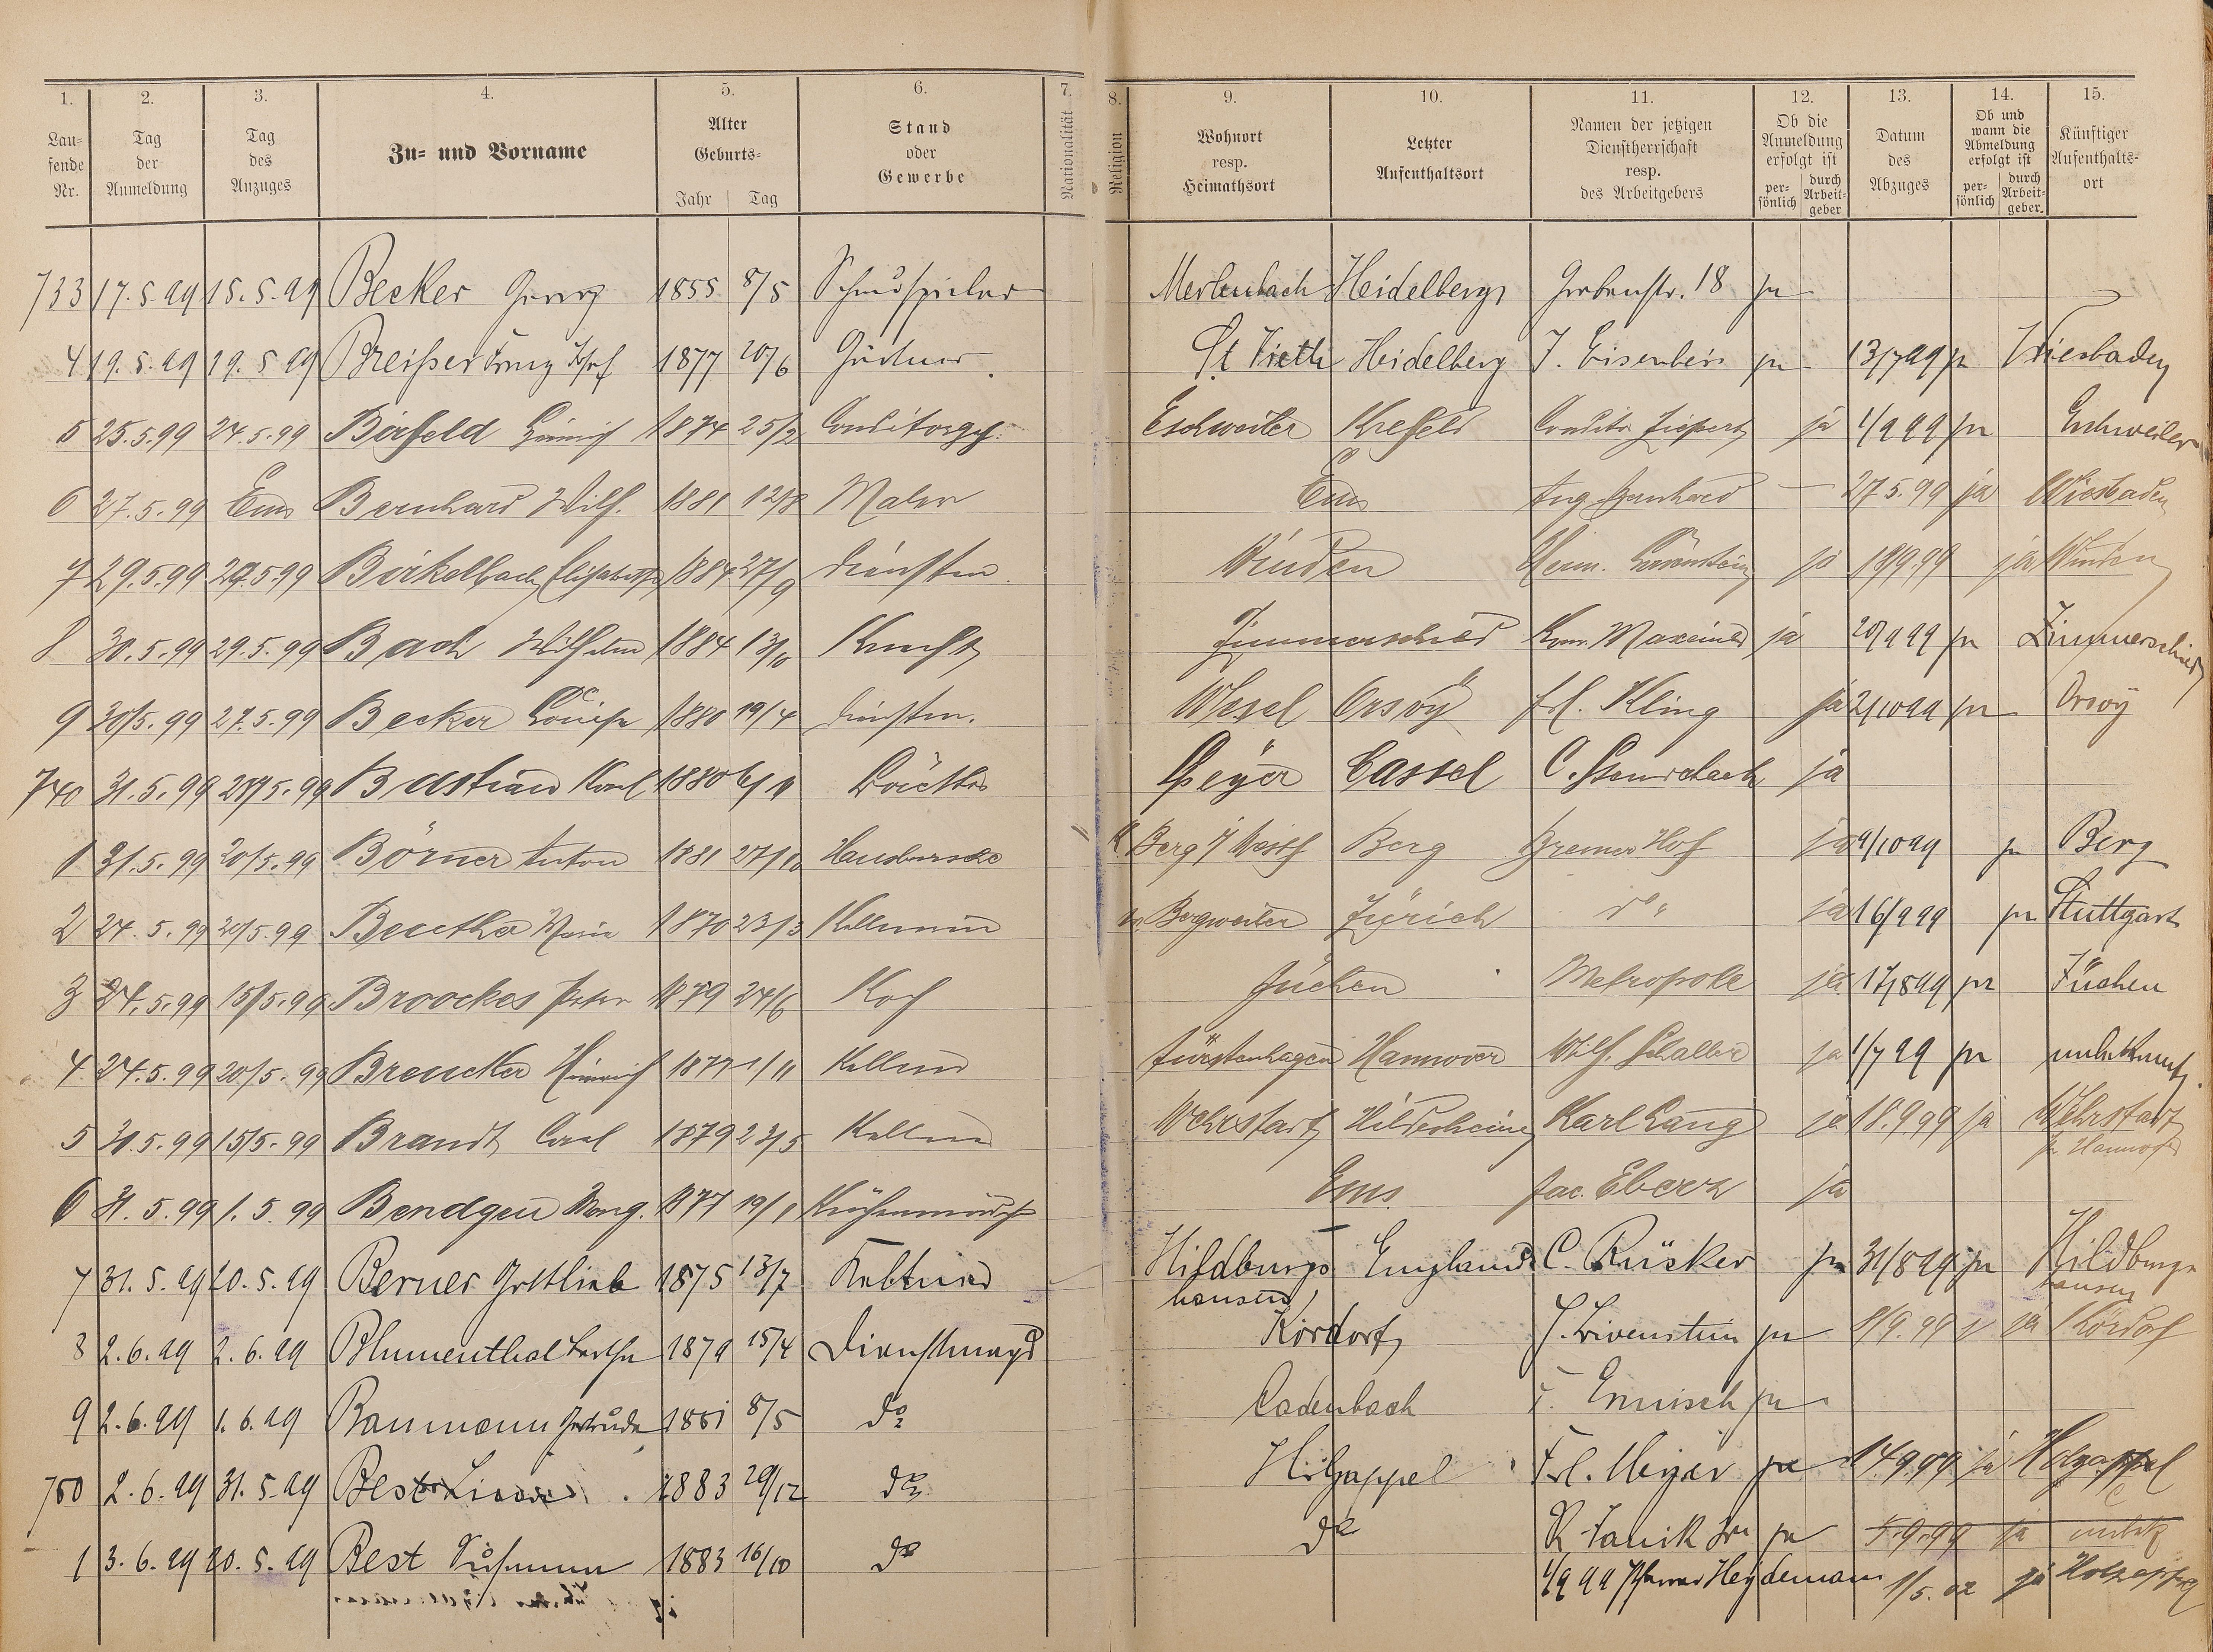 1. 2. 3. 4. 5. 6. 7. 8. 9. 10. 11. 12. 13. 14. 15.
Lau-
fende
Nr.
Tag
der
Anmeldung
Tag
des
Anzuges
Zu- und Vorname
Alter
Geburts-
Jahr Tag
Stand
oder
Gewerbe
Nationalität
Religion
Wohnort
resp.
Heimathsort
Letzter
Aufenthaltsort
Namen der jetzigen
Dienstherrschaft
resp.
des Arbeitgebers
Ob die
Anmeldung
erfolgt ist
per-
sönlich
durch
Arbeit-
geber
Datum
des
Abzuges
Ob und
wann die
Abmeldung
erfolgt ist
per-
sönlich
durch
Arbeit-
geber.
Künftiger
Aufenthalts-
ort
733 17.5.99 15.5.99 Becker Georg 1855 8/5 Schauspieler Merlenbach Heidelberg Grabenstr. 18 ja
4 19.5.99 19.5.99 Breißer Franz Josef 1877 20/6 Gärtner St Vieth Heidelberg J. Eisenbeis ja 13/7 99 ja Wiesbaden
5 25.5.99 24.5.99 Birfeld Heinrich 1874 25/2 Conditorgeh. Eschweiler Krefeld Conditor ja 1/9 99 ja Eschweiler
6 27.5.99 Ems Bernhard Wilh. 1881 12/8 Maler Ems Aug Bernhard — 27 5.99 ja Wiesbaden
7 29.5.99 29.5.99 Birkelbach Elisabeth 1884 27/9 Dienstm. Winden Herm. Löwenstein ja 18/9.99 ja Winden
8 30.5.99 29.5.99 Bach Wilhelm 1884 Knecht Zimmerschied Maxeiner ja 20/9 99 ja Zimmerschied
9 30/5.99 27.5.99 Becker Louise 1880 19/4 Dienstm. Wesel Orsoy Frl. Kling ja 2/10 99 ja Orsoy
740 31.5.99 Bastian Karl 1880 Speyer Cassel C. ja
1 31.5.99 20/5.99 Börner Anton 1881 27/10 Hausbursche Berg Westf Berg Bremer Hof ja 9/10 99 ja Berg
2 24.5.99 20/5.99 Marie 1870 23/3 Kellnerin Bergweiler Zürich do ja 16/9 99 ja Stuttgart
3 24.5.99 15/5.99 Broockes Peter 1879 24/6 Koch Jüchen Metropole ja 17/8 99 ja Jüchen
4 24.5.99 20/5.99 Breucker Heinrich 1877 1/11 Kellner Fürstenhagen Hannover Wilh. Schaller ja 1/7 99 ja unbekannt.
5 31.5.99 15/5.99 Brandt Carl 1879 23/5 Kellner Wehrstadt Hildesheim Karl Lang ja 18.9.99 ja Wehrstadt
6 31.5.99 1.5.99 Bendgen Marg. 1877 Küchenmädch Ems Jac. Eberz ja
7 31.5.99 20.5.99 Berner Gottlieb 1875 13/7 Kellner Hildburgs England C. Rüsker ja 31/8 99 ja Hildburgs
hausen hausen
8 2.6.99 2.6.99 Blumenthal Bertha 1879 15/4 Dienstmagd Kördorf J. Löwenstein ja 1/9.99 ja Kördorf
9 2.6.99 1.6.99 Baumann Gertrude 1881 8/5 do Cadenbach ja
750 2.6.99 31.5.99 Best 1883 29/12 do Holzappel Frl. Meyer ja 14.9.99 ja Holzappel
1 3.6.99 20.5.99 Best Susanna 1883 16/10 do do ja 5.9.99 ja unbek
1/9 99 Pfarrer Heydemann 1/5.02 ja Holzappel